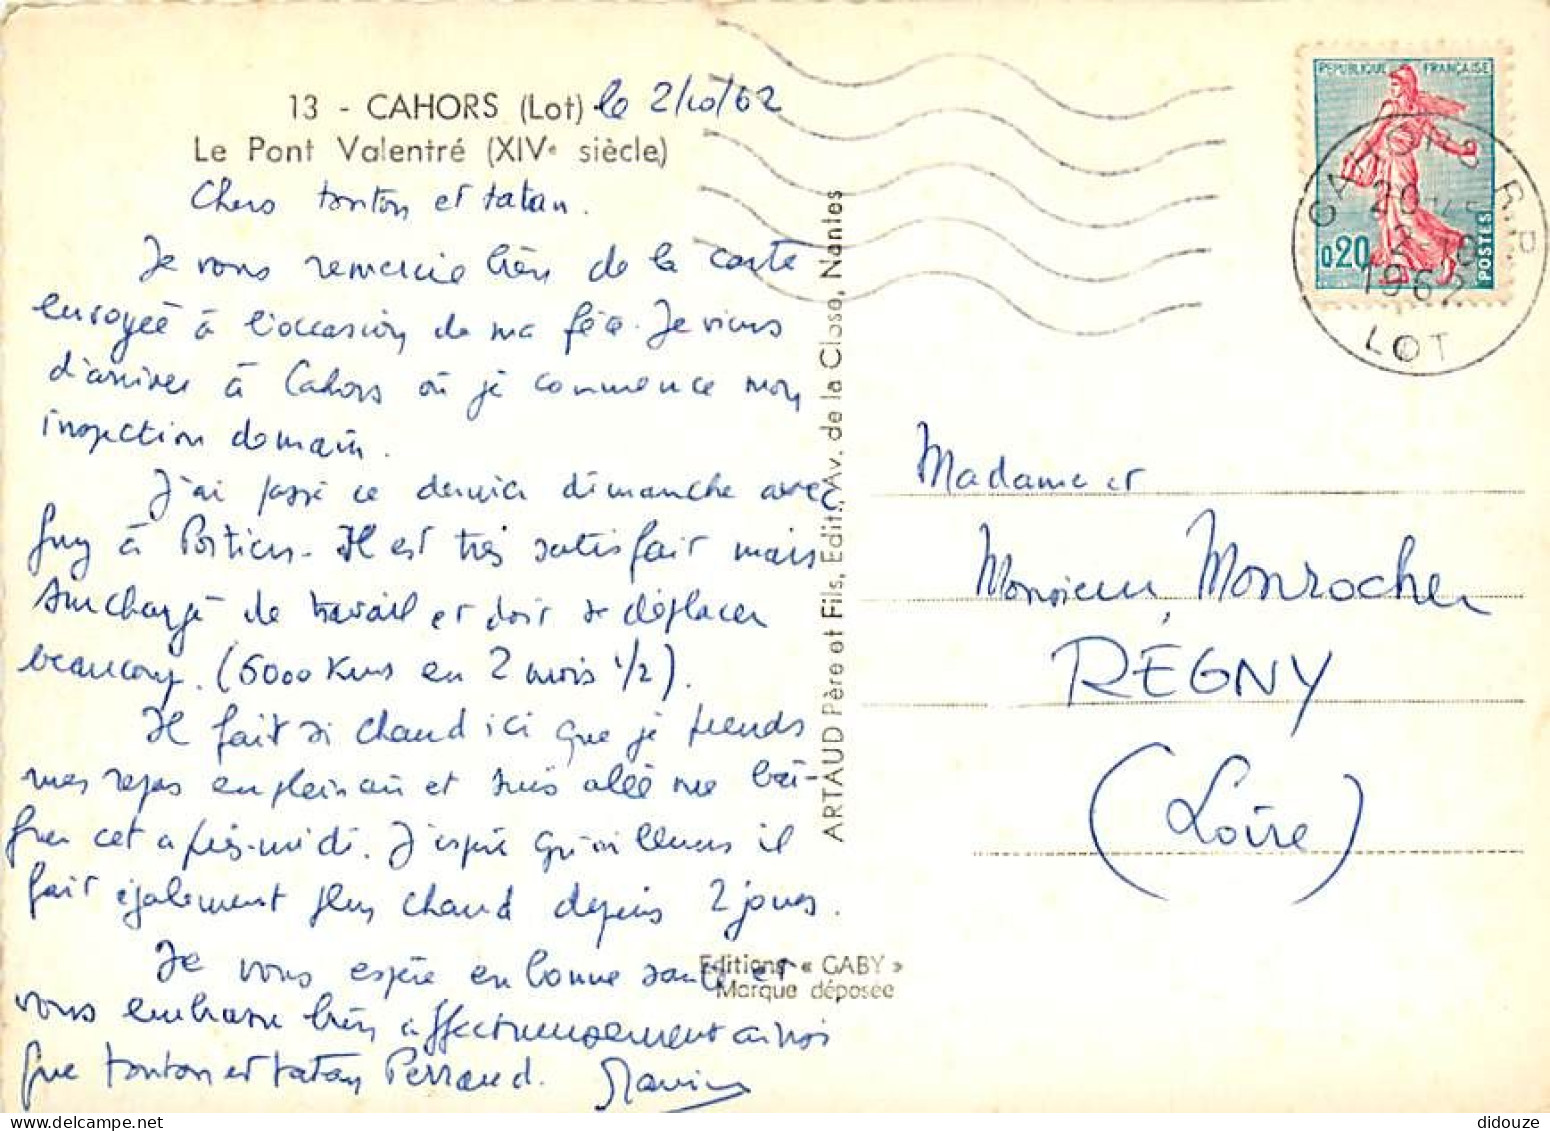 13 - CAHORS (Lot) le 2/10/62
Le Pont Valentré (XIVe siècle)
Chers tonton et tatan.
Je vous remercie bien de la carte
envoyée à l'occasion de ma fête. Je viens
d'arriver à Cahors où je commence mon
inspection demain.
J'ai passé ce dernier dimanche avec
Guy à Poitiers. Il est très satisfait mais
surchargé de travail et doit se déplacer
beaucoup. (6000 Kms en 2 mois 1/2).
Il fait si chaud ici que je prends
mes repas en plein air et suis allé me bai-
gner cet après-midi. J'espère qu'ailleurs il
fait également plus chaud depuis 2 jours.
Je vous espère en bonne santé et
vous embrasse bien affectueusement ainsi
que tonton et tatan Perraud.
ARTAUD Père et Fils, Edit., Av. de la Close, Nantes
Editions « GABY »
Marque déposée
REPUBLIQUE FRANÇAISE
0,20
POSTES
CAHORS R.P.
2-10
1962
LOT
Madame et
Monsieur Monrocher
RÉGNY
(Loire)
didouze